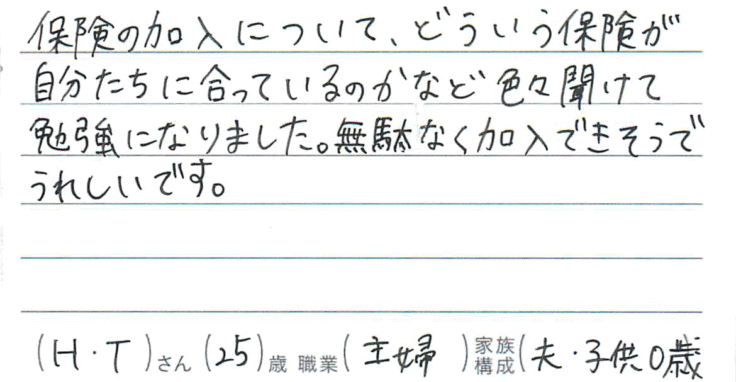 保険の加入について、どういう保険が
自分たちに合っているのかなど色々聞けて
勉強になりました。無駄なく加入できそうで
うれしいです。
(H・T)さん(25)歳 職業(主婦)家族構成(夫・子供0歳